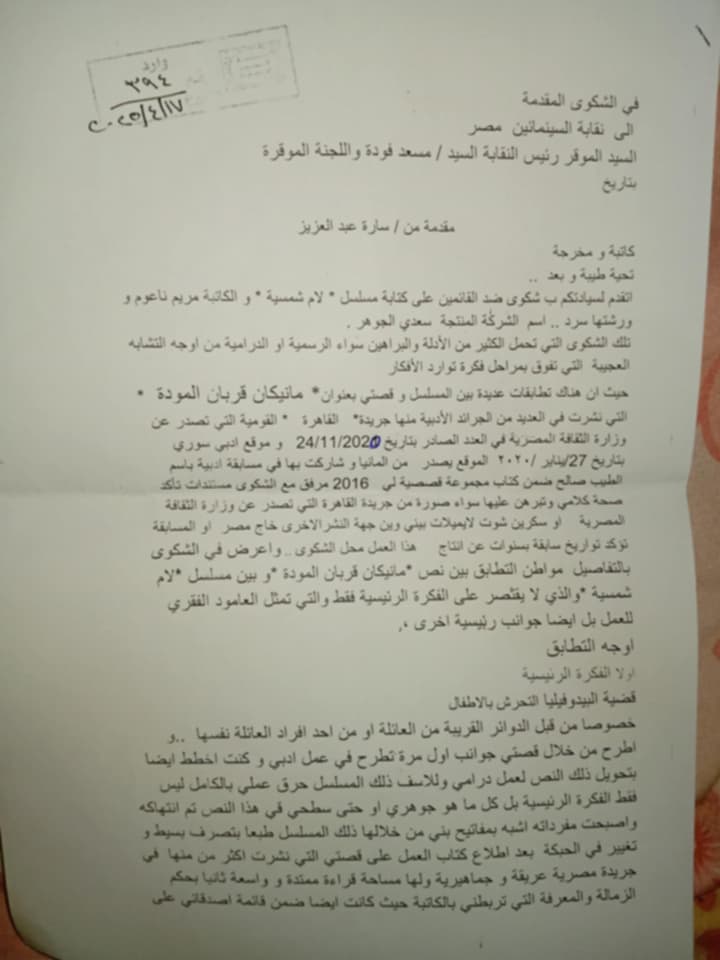 وارد
٣٩٤
٢٠٢٥/٤/١٧
في الشكوى المقدمة
الى نقابة السينمائين مصر
السيد الموقر رئيس النقابة السيد / مسعد فودة واللجنة الموقرة
بتاريخ
مقدمة من / سارة عبد العزيز
كاتبة و مخرجة
تحية طيبة و بعد ..
اتقدم لسيادتكم ب شكوى ضد القائمين على كتابة مسلسل * لام شمسية * و الكاتبة مريم ناعوم و
ورشتها سرد .. اسم الشركة المنتجة سعدي الجوهر .
تلك الشكوى التي تحمل الكثير من الأدلة والبراهين سواء الرسمية او الدرامية من اوجه التشابه
العجيبة التي تفوق بمراحل فكرة توارد الأفكار
حيث ان هناك تطابقات عديدة بين المسلسل و قصتي بعنوان* مانيكان قربان المودة *
التي نشرت في العديد من الجرائد الأدبية منها جريدة* القاهرة * القومية التي تصدر عن
وزارة الثقافة المصرية في العدد الصادر بتاريخ 24/11/2020 و موقع ادبي سوري
بتاريخ 27/يناير /٢٠٢٠ الموقع يصدر من المانيا و شاركت بها في مسابقة ادبية باسم
الطيب صالح ضمن كتاب مجموعة قصصية لي 2016 مرفق مع الشكوى مستندات تأكد
صحة كلامي وتبرهن عليها سواء صورة من جريدة القاهرة التي تصدر عن وزارة الثقافة
المصرية او سكرين شوت لايميلات بيني وبن جهة النشرالاخرى خاج مصر او المسابقة
تؤكد تواريخ سابقة بسنوات عن انتاج هذا العمل محل الشكوى .. واعرض في الشكوى
بالتفاصيل مواطن التطابق بين نص *مانيكان قربان المودة *و بين مسلسل *لام
شمسية *والذي لا يقتصر على الفكرة الرئيسية فقط والتي تمثل العامود الفقري
للعمل بل ايضا جوانب رئيسية اخرى ،
اوجه التطابق
اولا الفكرة الرئيسية
قضية البيدوفيليا التحرش بالاطفال
خصوصا من قبل الدوائر القريبة من العائلة او من احد افراد العائلة نفسها ..و
اطرح من خلال قصتي جوانب اول مرة تطرح في عمل ادبي و كنت اخطط ايضا
بتحويل ذلك النص لعمل درامي وللاسف ذلك المسلسل حرق عملي بالكامل ليس
فقط الفكرة الرئيسية بل كل ما هو جوهري او حتى سطحي في هذا النص تم انتهاكه
واصبحت مفرداته اشبه بمفاتيح بني من خلالها ذلك المسلسل طبعا بتصرف بسيط و
تغيير في الحبكة بعد اطلاع كتاب العمل على قصتي التي نشرت اكثر من منها في
جريدة مصرية عريقة و جماهيرية ولها مساحة قراءة ممتدة و واسعة ثانيا بحكم
الزمالة والمعرفة التي تربطني بالكاتبة حيث كانت ايضا ضمن قائمة اصدقائي على